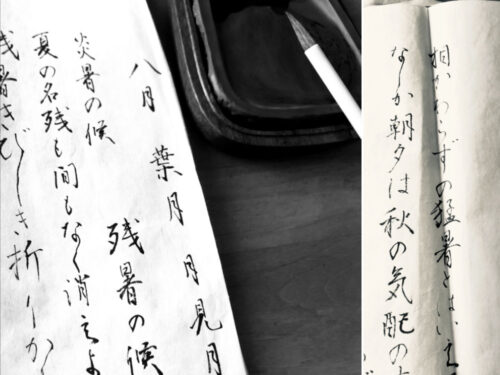 八月 葉月 月見月
残暑の候
炎暑の候
夏の名残も間もなく消えよ
残暑きびしき折りから
相かわらずの猛暑とはいえ
なか朝夕は秋の気配の